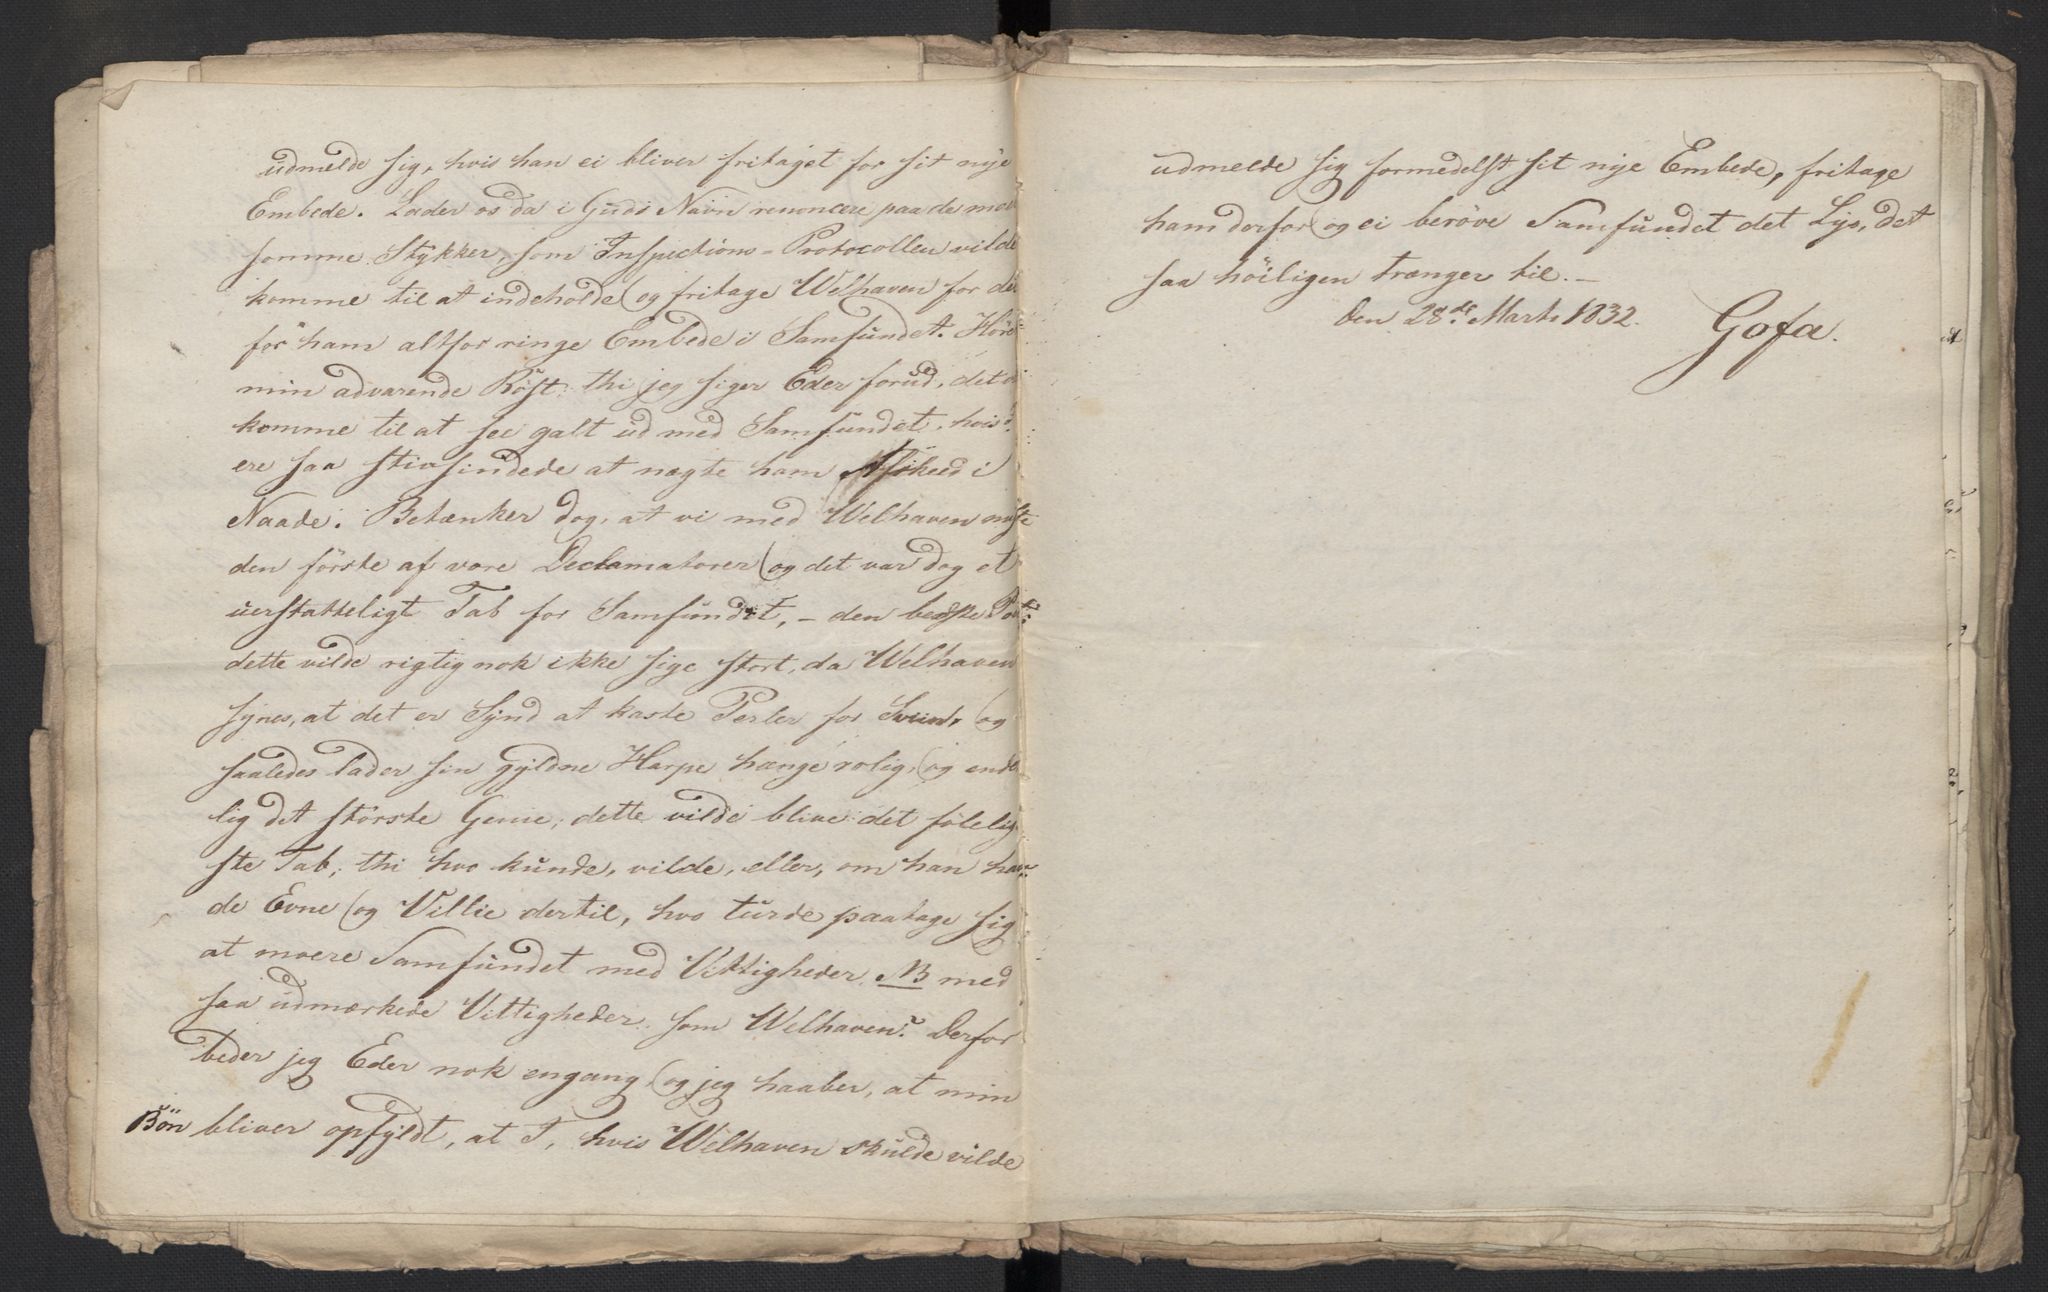 udmelde sig, hvis han ei bliver fritaget for sit nye
Embede. Lader os da i Guds Navn renoncere paa de mor
somme Stykker, som Inspections-Protocollen vilde
komme til at indeholde og fritage Welhaven for det
for ham altfor ringe Embede i Samfundet. Hører
min advarende Röst: thi jeg siger Eder forud, det vil
komme til at see galt ud med Samfundet, hvis I
ere saa stivsindede at nægte ham Afsked i
Naade. Betænker dog, at vi med Welhaven miste
den förste af vore Declamatorer og det var dog et
uerstatteligt Tab for Samfundet, - den bedste Poet:
dette vilde rigtignok ikke sige stort, da Welhaven
synes, at det er Synd at kaste Perler for Sviin, og
saaledes lader sin gyldne Harpe hænge rolig, og ende
lig det störste Genie; dette vilde blive det fölelig
ste Tab; thi hvo kunde, vilde, eller, om han hav-
de Evne og Villie dertil, hvo turde paatage sig
at moere Samfundet med Vittigheder, NB med
saa udmærkede Vittigheder som Welhaven? Derfor
beder jeg Eder nok engang, og jeg haaber, at min
Bön bliver opfyldt, at I, hvis Welhaven skulde vilde
udmelde sig formedelst sit nye Embede, fritage
ham derfor og ei beröve Samfundet det Lys, det
saa höiligen trænger til. -
Den 28de Marts 1832.
Gofa.